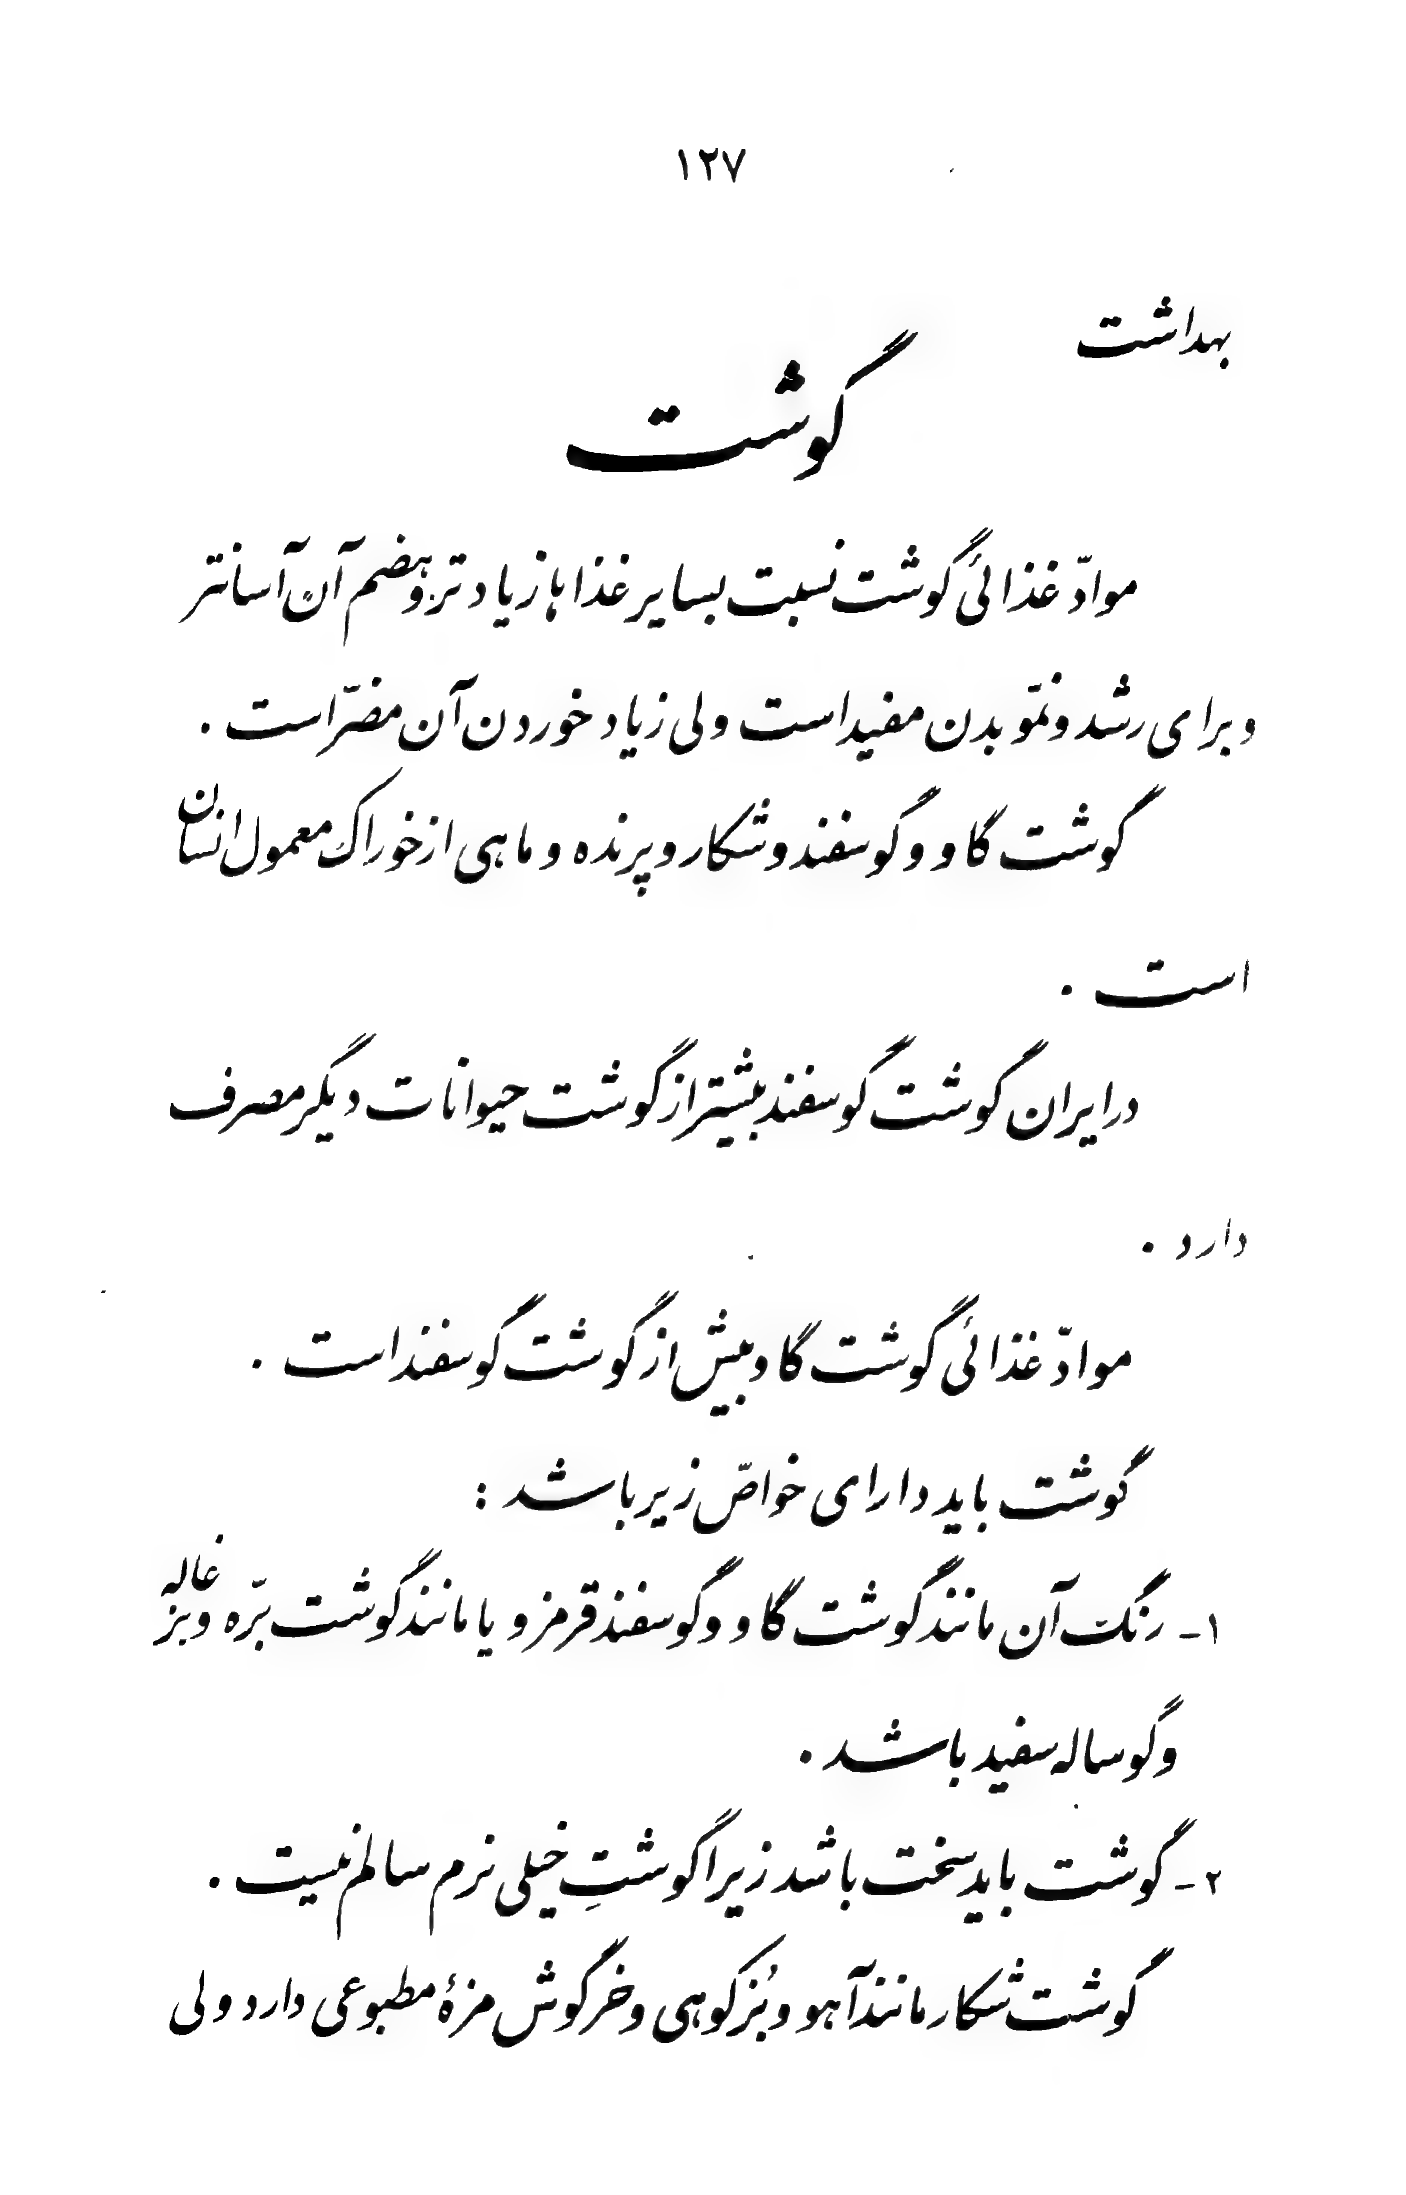 ۱۲۷
بهداشت
گوشت
موادّ غذائی گوشت نسبت بسایر غذاها زیادتر و هضم آن آسانتر
و برای رشد و نموّ بدن مفید است ولی زیاد خوردن آن مضرّ است .
گوشت گاو و گوسفند و شکار و پرنده و ماهی از خوراک معمول انسان
است .
در ایران گوشت گوسفند بیشتر از گوشت حیوانات دیگر مصرف
دارد .
موادّ غذائی گوشت گاو بیش از گوشت گوسفند است .
گوشت باید دارای خواصّ زیر باشد :
۱- رنگ آن مانند گوشت گاو و گوسفند قرمز و یا مانند گوشت برّه و بزغاله
و گوساله سفید باشد .
۲- گوشت باید سخت باشد زیرا گوشتِ خیلی نرم سالم نیست .
گوشت شکار مانند آهو و بُز کوهی و خرگوش مزهٔ مطبوعی دارد ولی